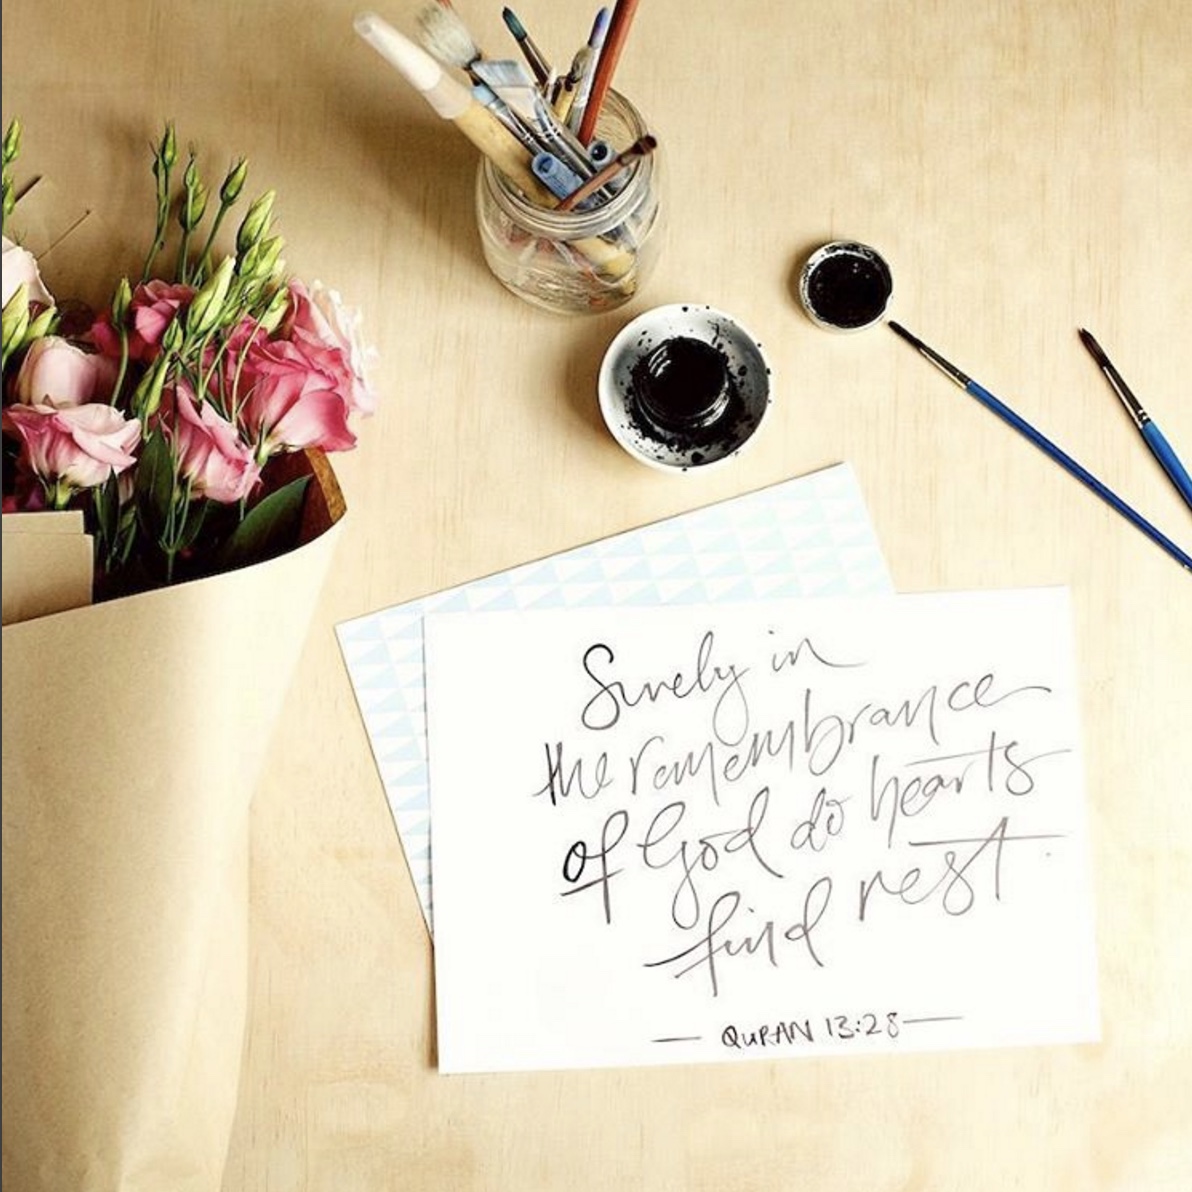 Surely in
the remembrance
of God do hearts
find rest.
— QURAN 13:28 —